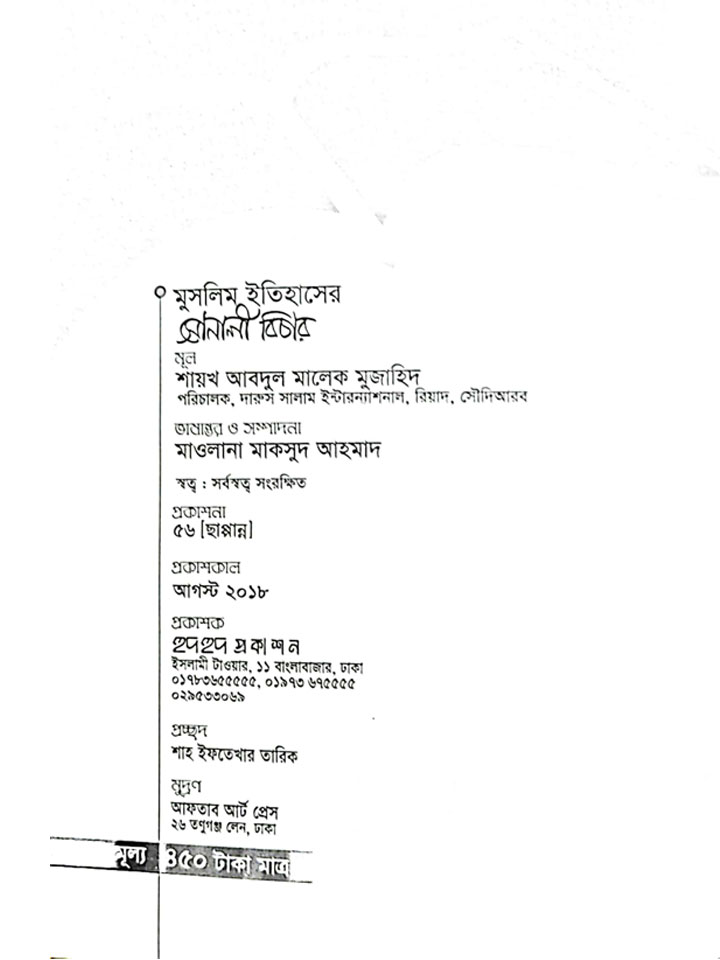 মুসলিম ইতিহাসের
সোনালী বিচার
মূল
শায়খ আবদুল মালেক মুজাহিদ
পরিচালক, দারুস সালাম ইন্টারন্যাশনাল, রিয়াদ, সৌদিআরব
ভাষান্তর ও সম্পাদনা
মাওলানা মাকসুদ আহমাদ
স্বত্ব : সর্বস্বত্ব সংরক্ষিত
প্রকাশনা
৫৬ [ছাপ্পান্ন]
প্রকাশকাল
আগস্ট ২০১৮
প্রকাশক
হুদহুদ প্রকাশন
ইসলামী টাওয়ার, ১১ বাংলাবাজার, ঢাকা
০১৭৮৩৬৫৫৫৫৫, ০১৯৭৩ ৬৭৫৫৫৫
০২৯৫৩৩০৬৯
প্রচ্ছদ
শাহ ইফতেখার তারিক
মুদ্রণ
আফতাব আর্ট প্রেস
২৬ তনুগঞ্জ লেন, ঢাকা
মূল্য ৪৫০ টাকা মাত্র